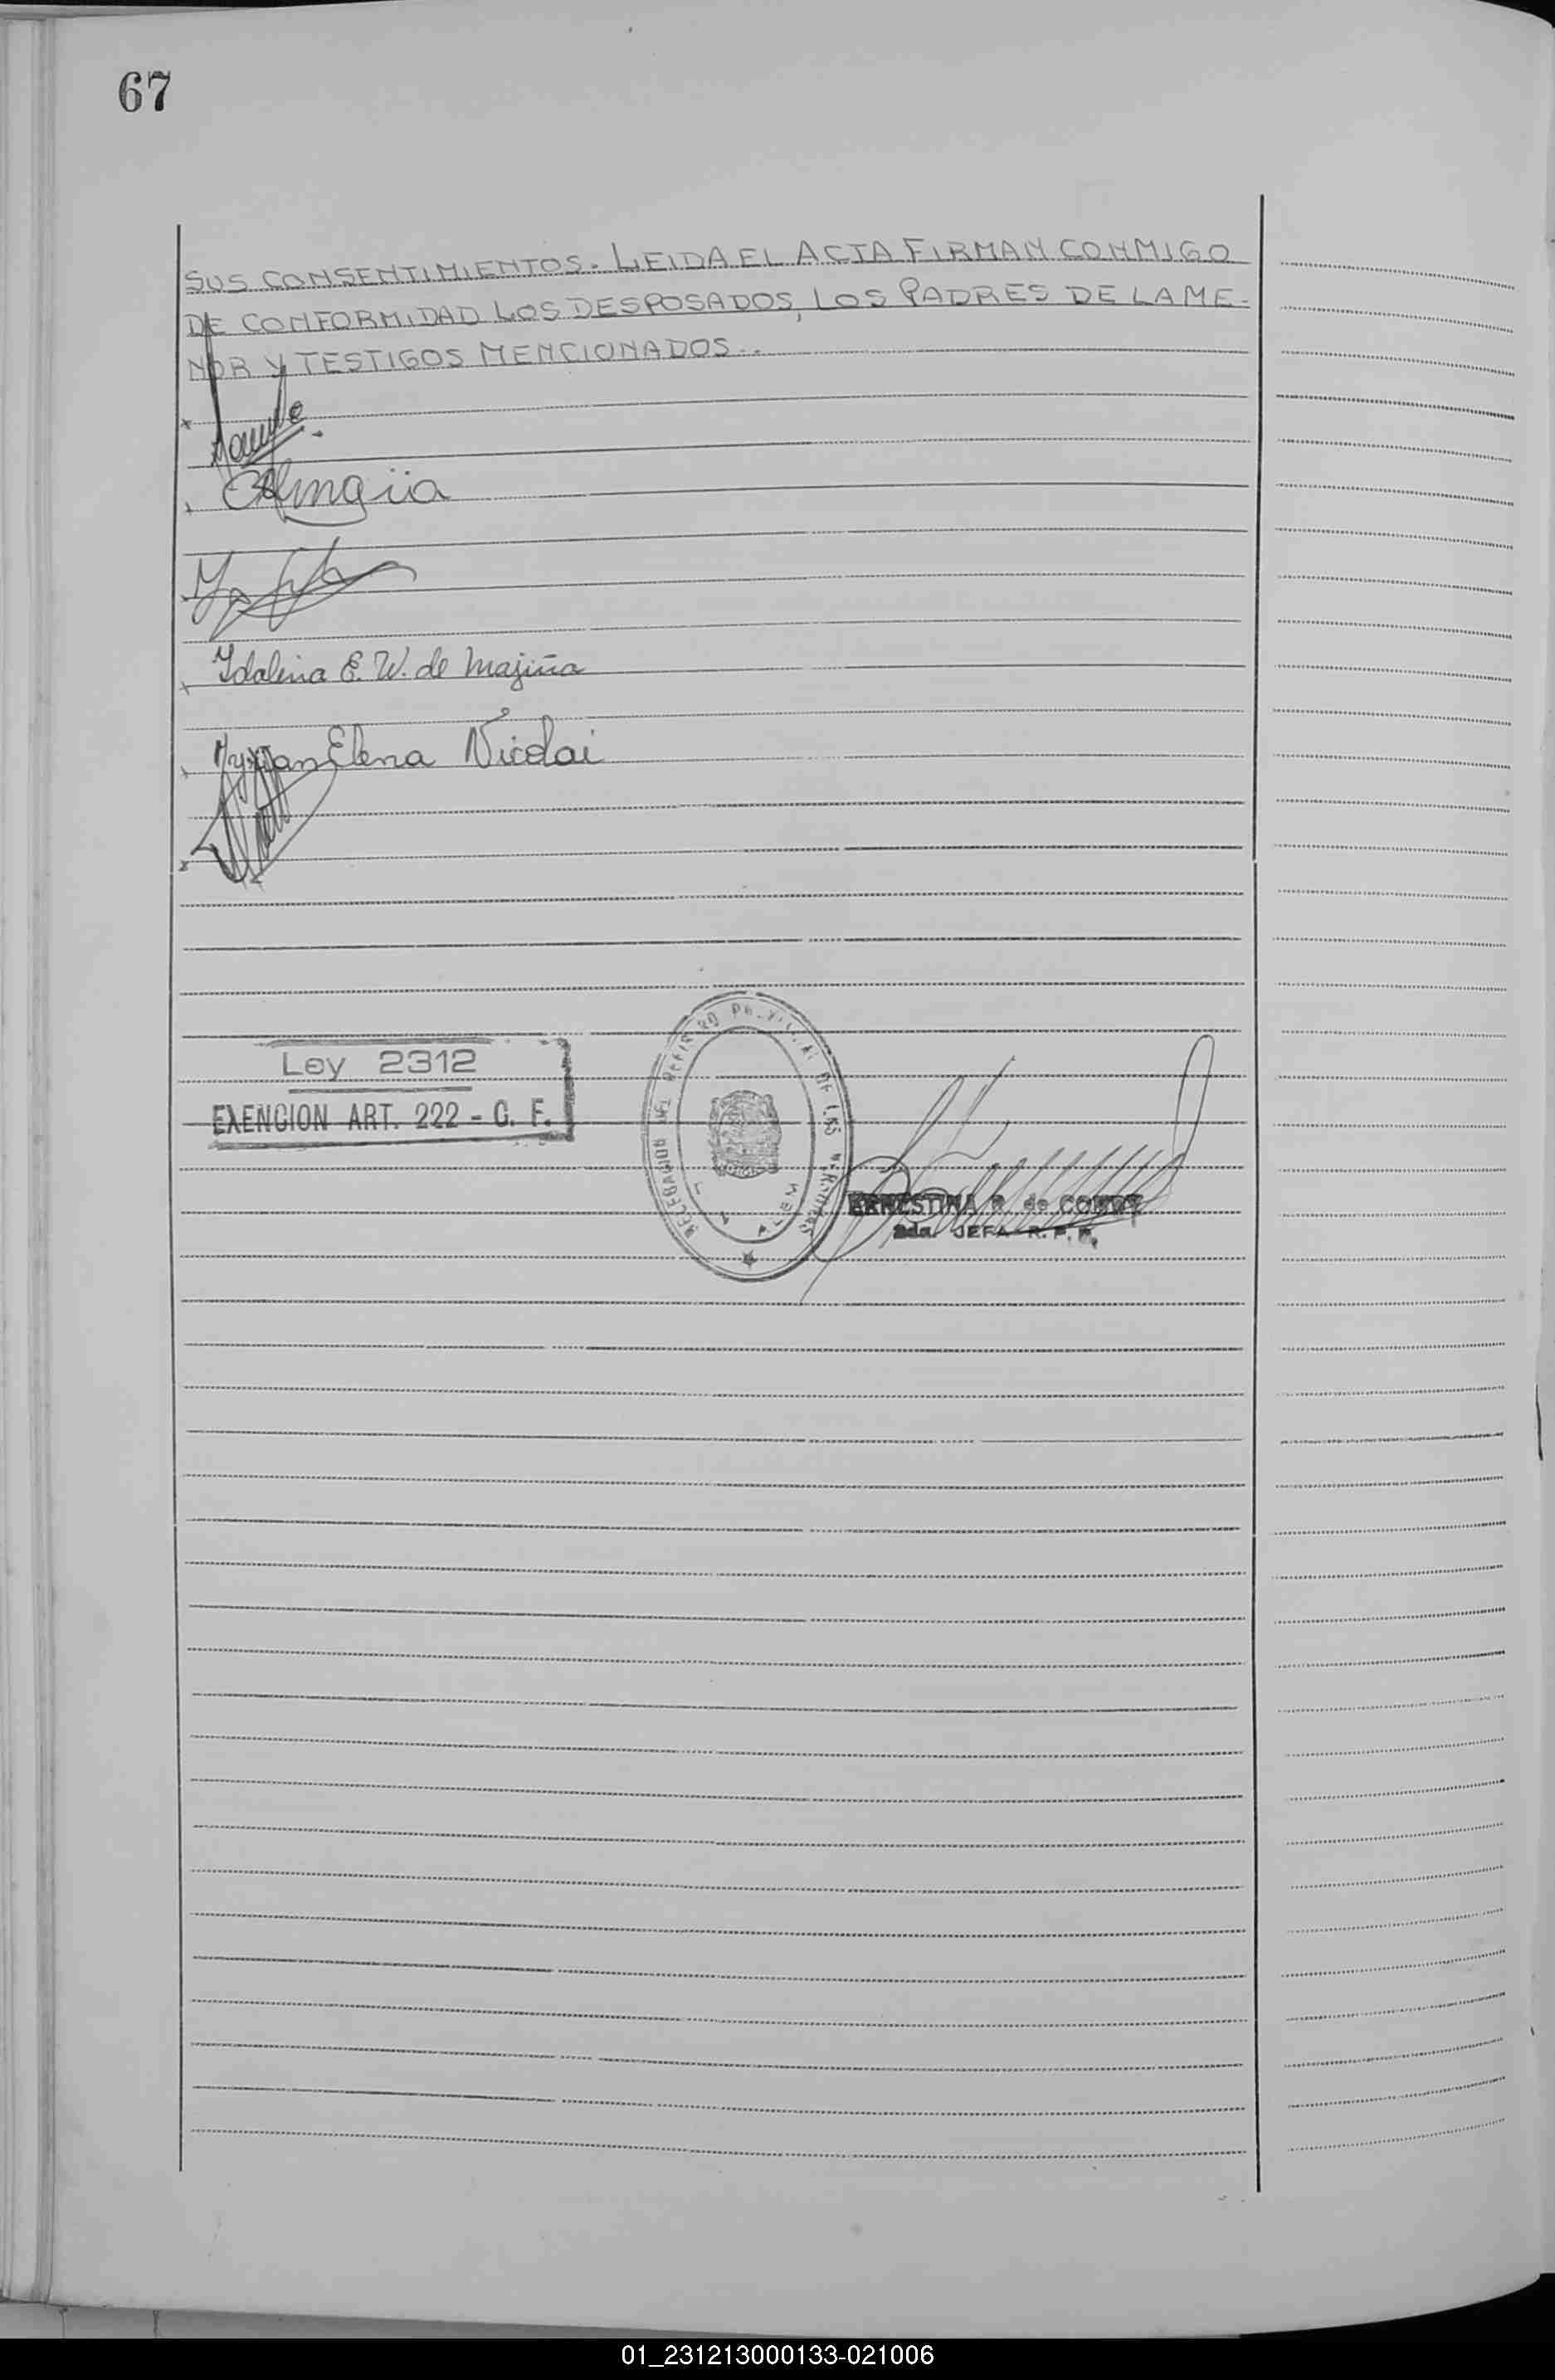 67
SUS CONSENTIMIENTOS. LEIDA EL ACTA FIRMAN CONMIGO
DE CONFORMIDAD LOS DESPOSADOS, LOS PADRES DE LA ME-
NOR Y TESTIGOS MENCIONADOS..
Idalina E. W. de Majiña
Myrian Elena Nicolai
Ley 2312
EXENCION ART. 222 - C. F.
DELEGACION DEL REGISTRO PROVINCIAL DE LAS PERSONAS
L. N. ALEM
ERNESTINA R. de
2da. JEFA R. P. P.
01_231213000133-021006